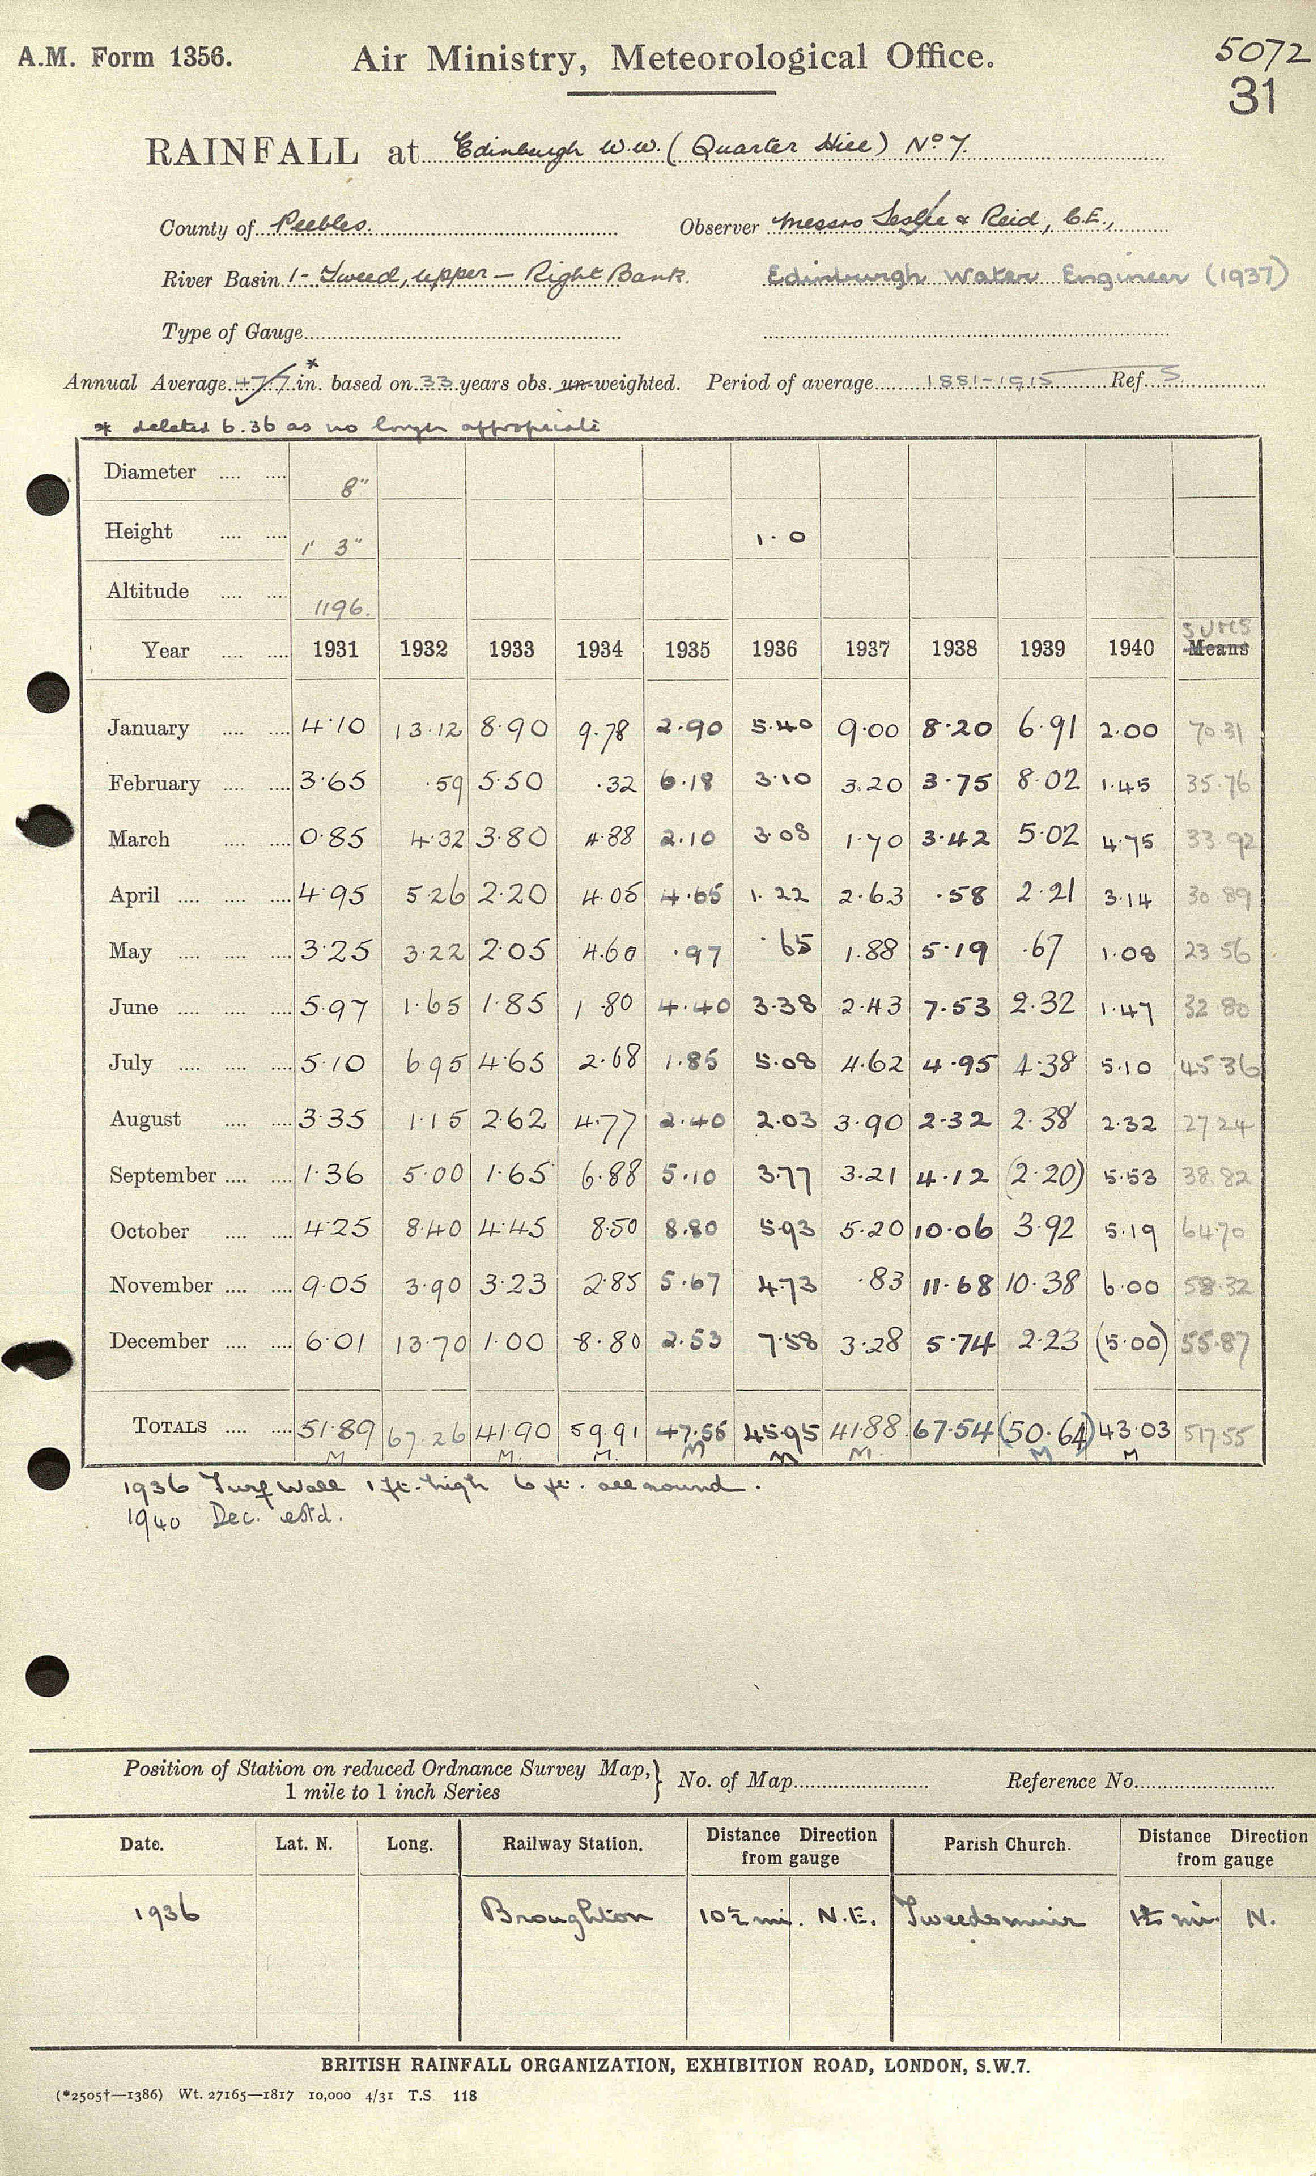 A.M. Form 1356. Air Ministry, Meteorological Office. 5072
31
RAINFALL at Edinburgh W.W. (Quarter Hill) No 7.
County of Peebles. Observer Messrs Leslie & Reid, C.E.,
River Basin 1 - Tweed, upper - Right Bank. Edinburgh Water Engineer (1937)
Type of Gauge
Annual Average 47.7 in.* based on 33 years obs. un-weighted. Period of average 1881-1915 Ref. S
* deleted 6.36 as no longer appropriate
Diameter 8"
Height 1' 3" 1.0
Altitude 1196.
SUMS
Year 1931 1932 1933 1934 1935 1936 1937 1938 1939 1940 Means
January 4.10 13.12 8.90 9.78 2.90 5.40 9.00 8.20 6.91 2.00 70.31
February 3.65 .59 5.50 .32 6.18 3.10 3.20 3.75 8.02 1.45 35.76
March 0.85 4.32 3.80 4.88 2.10 3.08 1.70 3.42 5.02 4.75 33.92
April 4.95 5.26 2.20 4.05 4.65 1.22 2.63 .58 2.21 3.14 30.89
May 3.25 3.22 2.05 4.60 .97 .65 1.88 5.19 .67 1.08 23.56
June 5.97 1.65 1.85 1.80 4.40 3.38 2.43 7.53 2.32 1.47 32.80
July 5.10 6.95 4.65 2.68 1.85 5.08 4.62 4.95 4.38 5.10 45.36
August 3.35 1.15 2.62 4.77 2.40 2.03 3.90 2.32 2.38 2.32 27.24
September 1.36 5.00 1.65 6.88 5.10 3.77 3.21 4.12 (2.20) 5.53 38.82
October 4.25 8.40 4.45 8.50 8.80 5.93 5.20 10.06 3.92 5.19 64.70
November 9.05 3.90 3.23 2.85 5.67 4.73 .83 11.68 10.38 6.00 58.32
December 6.01 13.70 1.00 8.80 2.53 7.58 3.28 5.74 2.23 (5.00) 55.87
TOTALS 51.89 67.26 41.90 59.91 47.55 45.95 41.88 67.54 (50.64) 43.03 517.55
M M. M. M M M. M M
1936 Turf Wall 1 ft. high 6 ft. all round.
1940 Dec. estd.
Position of Station on reduced Ordnance Survey Map, } No. of Map Reference No.
1 mile to 1 inch Series
Date. Lat. N. Long. Railway Station. Distance Direction from gauge Parish Church. Distance Direction from gauge
1936 Broughton 10½ mi. N.E. Tweedsmuir 1½ mi. N.
BRITISH RAINFALL ORGANIZATION, EXHIBITION ROAD, LONDON, S.W.7.
(*2505†—1386) Wt. 27165—1817 10,000 4/31 T.S. 118